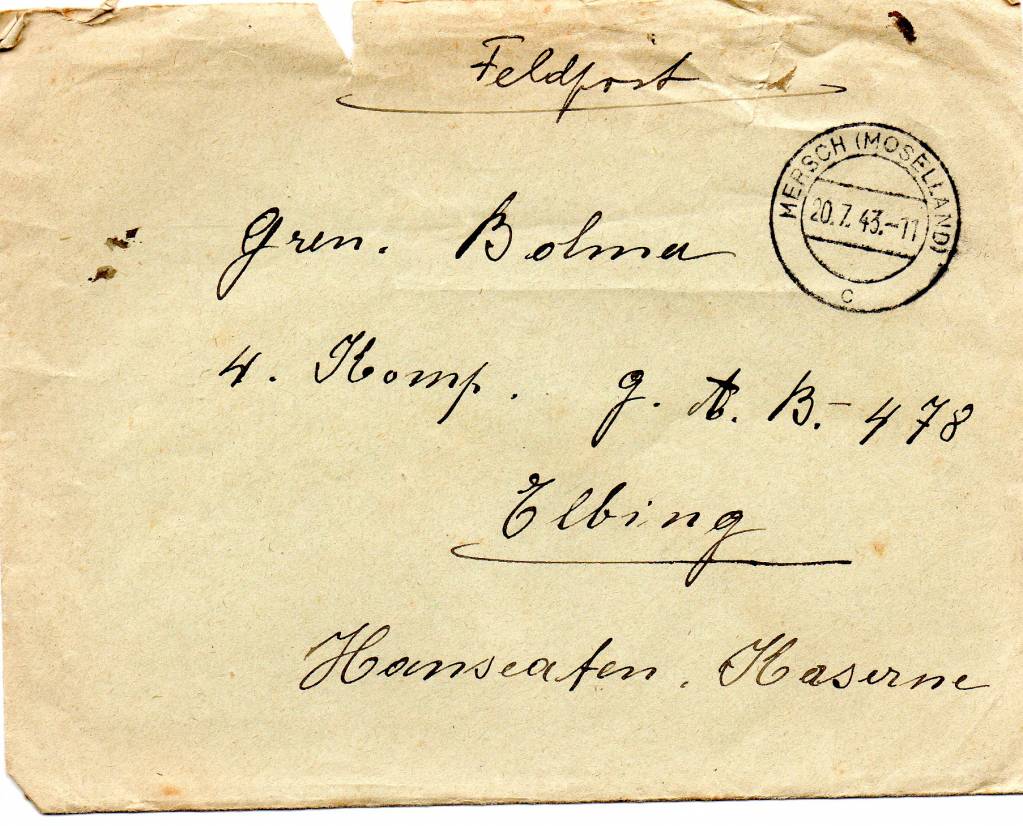 Feldpost
MERSCH (MOSELLAND)
20.7.43.-11
c
Gren. Bolmer
4. Komp. g. A. B.- 478
Elbing
Hanseaten. Kaserne